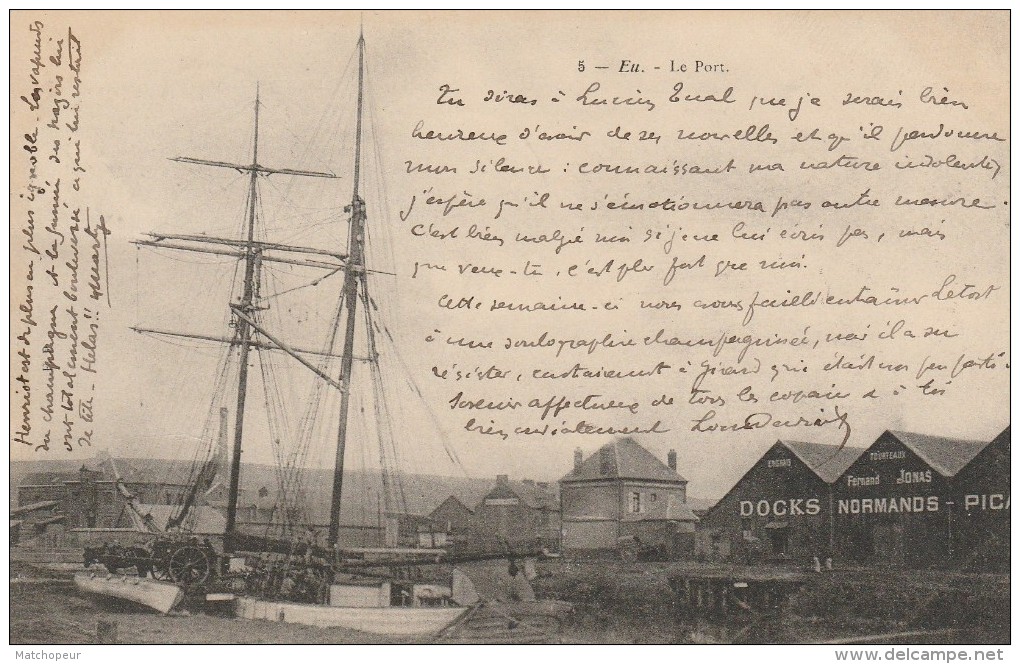 5 — Eu. - Le Port.
Tu diras à Lucien que je serais bien
heureux d'avoir de ses nouvelles et qu'il pardonne
mon silence : connaissant ma nature indolente,
j'espère qu'il ne s'émotionnera pas outre mesure.
C'est bien malgré moi si je ne lui écris pas, mais
que veux-tu, c'est plus fort que moi.
Cette semaine-ci nous avons failli entaîner
à une soulographie champaginée, mais il a su
résister, contrairement à Girard qui était un peu parti.
Souvenir affectueux de tous les copains & à toi
bien cordialement
Henriot est de plus en plus ignoble. Les vapeurs
du champagne et la fumée des
ont totalement bouleversé ce qui lui restait
de tête - Hélas!!
ENGRAIS
TOURTEAUX
Fernand JONAS
DOCKS NORMANDS - PICA
Matchopeur
http://www.delcampe.net